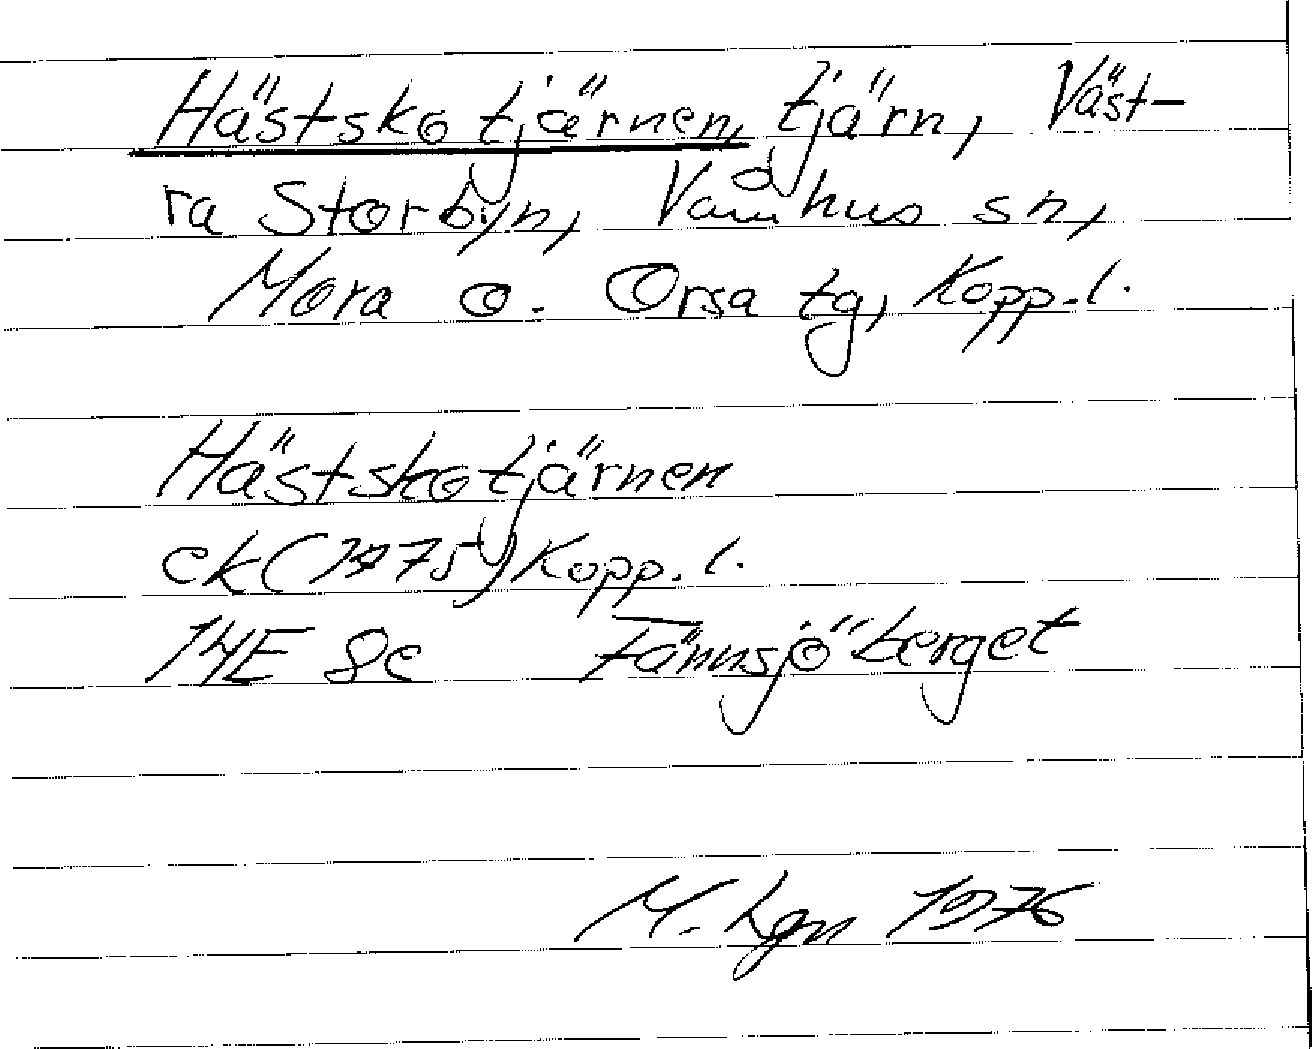 Hästskotjärnen, tjärn, Väst-
ra Storbyn, Våmhus sn,
Mora o. Orsa tg, Kopp. l.
Hästskotjärnen
ek (1975) Kopp. l.
14E 8c Fännsjöberget
M. Lgn 1976